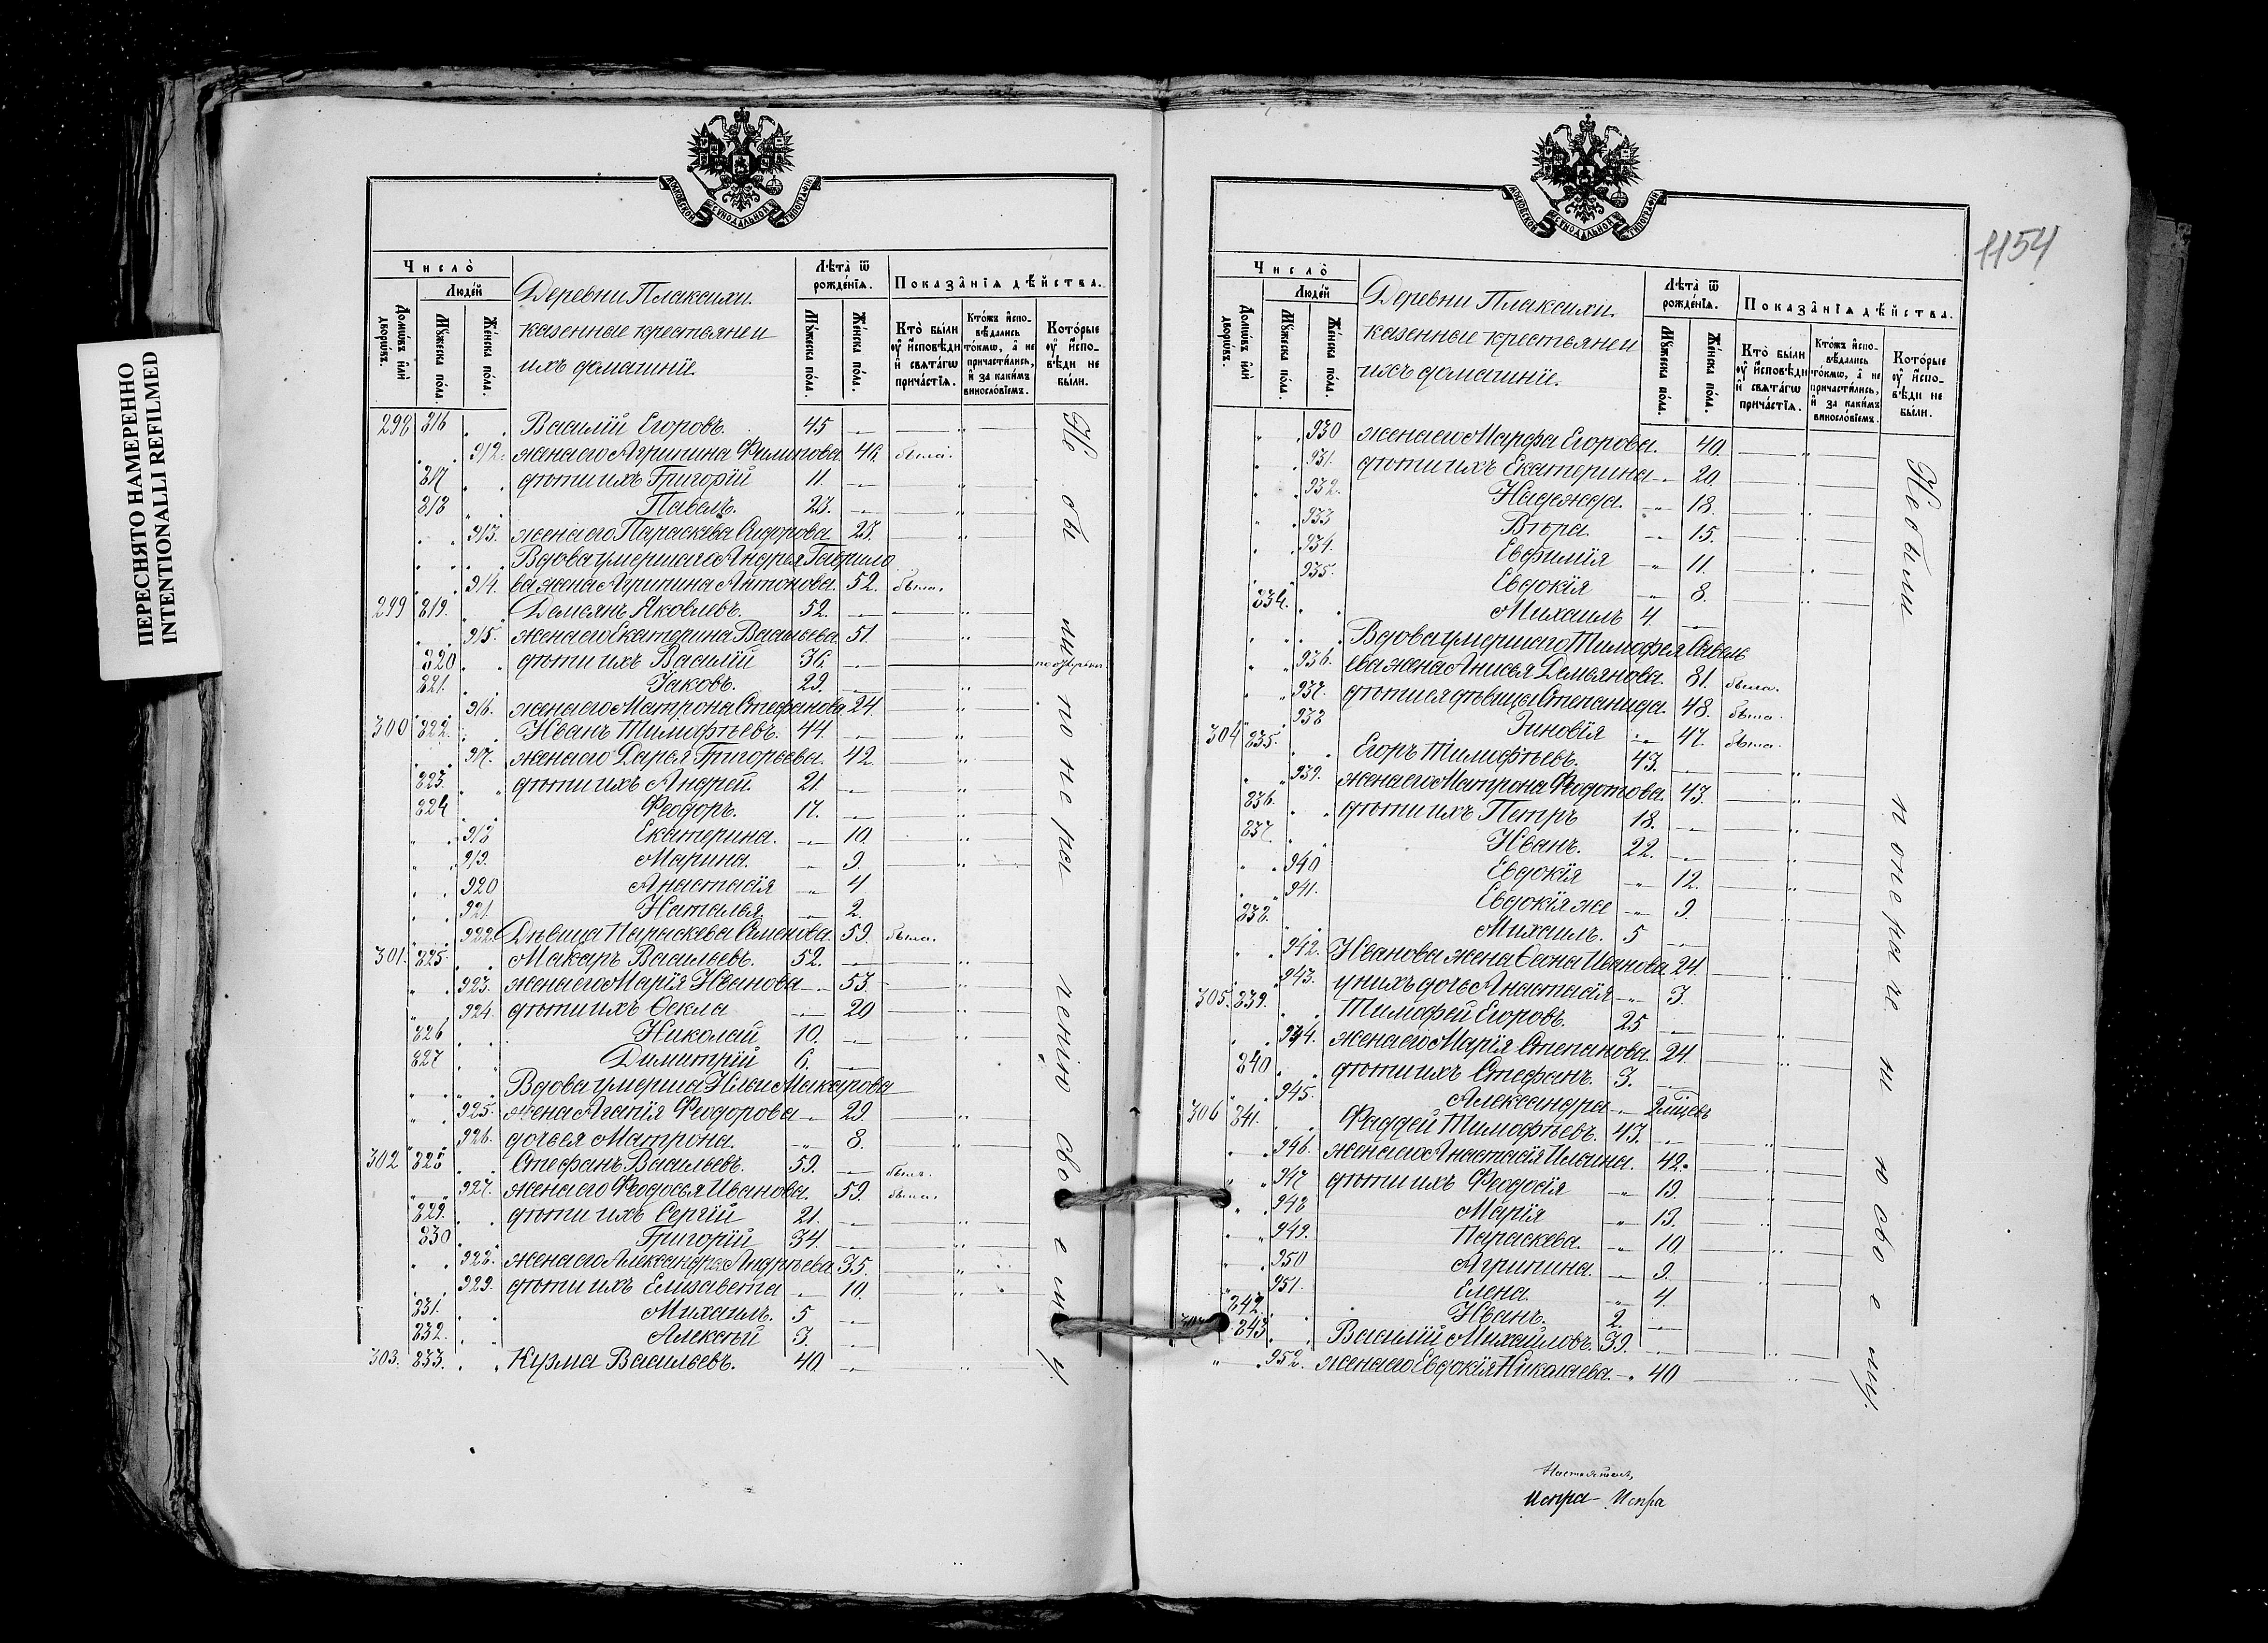 ПЕРЕСНЯТО НАМЕРЕННО
INTENTIONALLI REFILMED
МОСКОВСКОЙ СѴНОДАЛЬНОЙ ТИПОГРАФІИ
Число̀
Людѐй
Домѡ́въ и҆лѝ дворѡ́въ.
Мꙋ́жеска по́ла.
Же́нска по́ла.
Деревни Плаксихи.
казенные крестьяне и
ихъ домашніе.
Лѣта̀ ѿ рожде́нїѧ.
Мꙋ́жеска по́ла.
Же́нска по́ла.
Показа̑нїѧ дѣ́йства.
Кто̀ бы́ли ᲂу҆ и҆́споведи и҆ свѧта́гѡ прича́стїѧ.
Кто́жъ и҆спо-вѣ́дались то́кмѡ, а҆ не причасти́лись, и҆ за каки́мъ винослов́їемъ.
Кото́рые ᲂу҆ и҆спо-вѣди не бы́ли.
298 816 Василій Егоровъ. 45
912. жена его Агрипина Филипова 46. была.
817 дѣти ихъ Григорій 11.
818 Павелъ. 23.
913. жена его Параскева Сидорова 23.
Вдова умершаго Андрея Гаврило
914. ва жена Агрипина Антонова. 52. была.
299 819. Демьянъ Яковлевъ. 52.
915. жена его Екатерина Васильева. 51
820 дѣти ихъ Василій 36.
821. Іаковъ. 29.
916. жена его Матрона Стефанова 24.
300 822. Иванъ Тимофѣевъ. 44.
917. жена его Дарья Григорьева. 42
823. дѣти ихъ Андрей. 21.
824 Феодоръ. 17.
918 Екатерина. 10.
919. Марина. 9
920 Анастасія 4
921. Наталья 2.
922. Дѣвица Параскева Симонова. 59. была.
301. 825. Макаръ Васильевъ. 52.
923. жена его Марія Иванова 53
924. дѣти ихъ Ѳекла 20
826 Николай 10.
827 Димитрій 6.
Вдова умерша Ильи Макарова
925. жена Агапія Феодорова 29
926. дочь ея Матрона. 8.
302 828 Стефанъ Васильевъ. 59. былъ.
927. жена его Феодосья Иванова. 59. была.
829. дѣти ихъ Сергій 21.
830 Григорій 34.
928. жена его Александра Андрѣева 35.
929. дѣти ихъ Елизавета 10.
831. Михаилъ. 5
832. Алексѣй 3.
303. 833. Кузма Васильевъ. 40.
Не были по нераченію своему.
1154
МОСКОВСКОЙ СѴНОДАЛЬНОЙ ТИПОГРАФІИ
Число̀
Людѐй
Домѡ́въ и҆лѝ дворѡ́въ.
Мꙋ́жеска по́ла.
Же́нска по́ла.
Деревни Плаксихи.
казенные крестьяне и
ихъ домашніе.
Лѣта̀ ѿ рожде́нїѧ.
Мꙋ́жеска по́ла.
Же́нска по́ла.
Показа̑нїѧ дѣ́йства.
Кто̀ бы́ли ᲂу҆ и҆́споведи и҆ свѧта́гѡ прича́стїѧ.
Кто́жъ и҆спо-вѣ́дались то́кмѡ, а҆ не причасти́лись, и҆ за каки́мъ винослов́їемъ.
Кото́рые ᲂу҆ и҆спо-вѣди не бы́ли.
930 жена его Марфа Егорова. 40.
931. дѣти ихъ Екатерина 20.
932. Надежда. 18.
933 Вѣра. 15.
934. Евфимія 11.
935. Евдокія 8.
834. Михаилъ 4.
Вдова умершаго Тимофея Савель
936. ева жена Анисья Демьянова. 81. была.
937. дѣти ея дѣвицы Степанида. 48. была.
938 Зиновія 47. была.
304 835. Егоръ Тимофѣевъ. 43.
939. жена его Матрона Федотова. 43.
836. дѣти ихъ Петръ 18.
837. Иванъ. 22.
940 Евдокія 12.
941. Евдокія же 9.
838. Михаилъ. 5
942. Иванова жена Ѳеона Иванова 24.
943. у нихъ дочь Анастасія 3.
305. 839. Тимофей Егоровъ. 25
944. жена его Марія Степанова. 24.
840 дѣти ихъ Стефанъ. 3.
945. Александра
306 841. Фаддей Тимофѣевъ. 43.
946. жена его Анастасія Ильина. 42.
947 дѣти ихъ Феодосія 19.
948 Марія 13.
949. Параскева. 10.
950 Агрипина. 9.
951. Елена. 4.
842. Иванъ. 2.
843 Василій Михайловъ. 39.
952. жена его Евдокія Николаева. 40
Не были по нерачению своему.